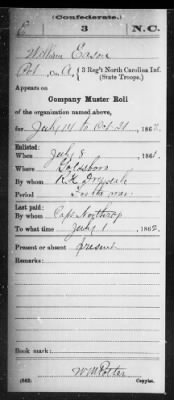 (Confederate.)
E 3 N.C.
William Eason
Pvt, Co. A, 3 Reg't North Carolina Inf.
(State Troops.)
Appears on
Company Muster Roll
of the organization named above,
for July 1 to Oct 31, 1862.
Enlisted:
When July 8, 1861.
Where Goldsboro
By whom
Period For the war
Last paid:
By whom Capt Northrop
To what time July 1, 1862.
Present or absent present
Remarks:
Book mark:
W M Porter
(642) Copyist.